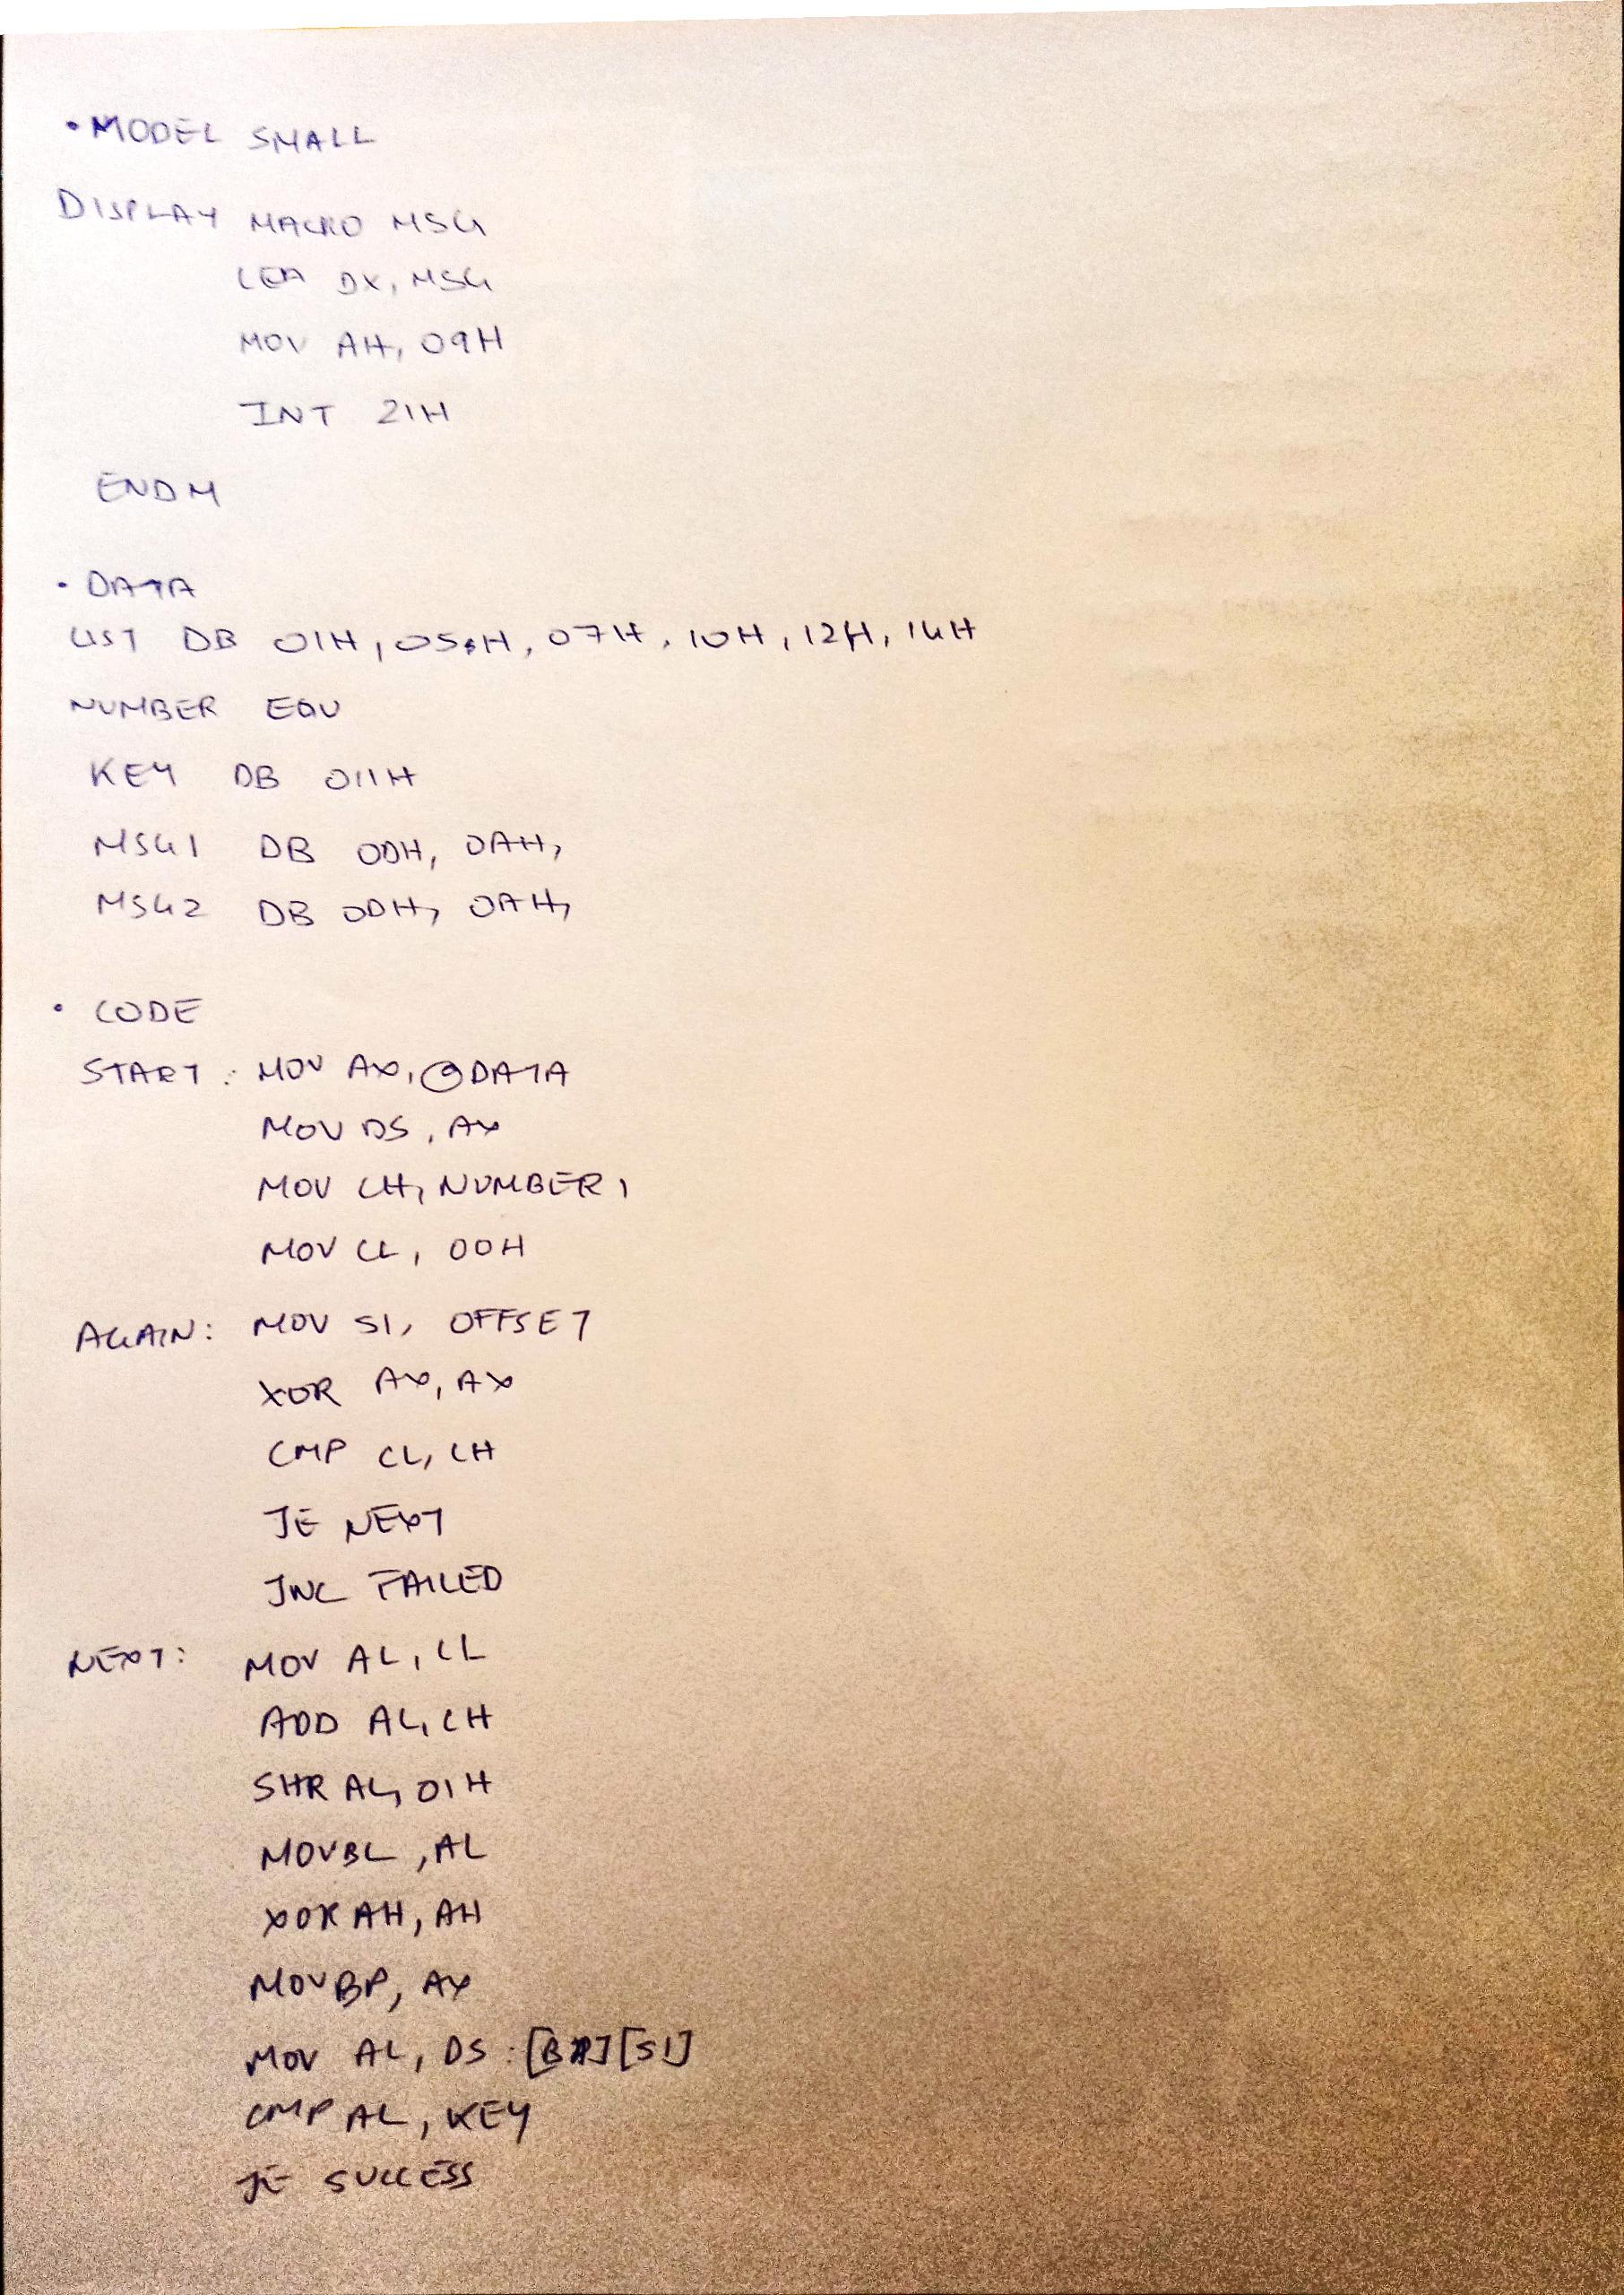 .MODEL SMALL
DISPLAY MACRO MSG
LEA DX, MSG
MOV AH, 09H
INT 21H
ENDM
.DATA
LIST DB 01H, 05H, 07H, 10H, 12H, 14H
NUMBER EQU
KEY DB 011H
MSG1 DB 0DH, 0AH,
MSG2 DB 0DH, 0AH,
.CODE
START: MOV AX, @DATA
MOV DS, AX
MOV CH, NUMBER1
MOV CL, 00H
AGAIN: MOV SI, OFFSET
XOR AX, AX
CMP CL, CH
JE NEXT
JNC FAILED
NEXT: MOV AL, CL
ADD AL, CH
SHR AL, 01H
MOV BL, AL
XOR AH, AH
MOV BP, AX
MOV AL, DS:[BP][SI]
CMP AL, KEY
JE SUCCESS